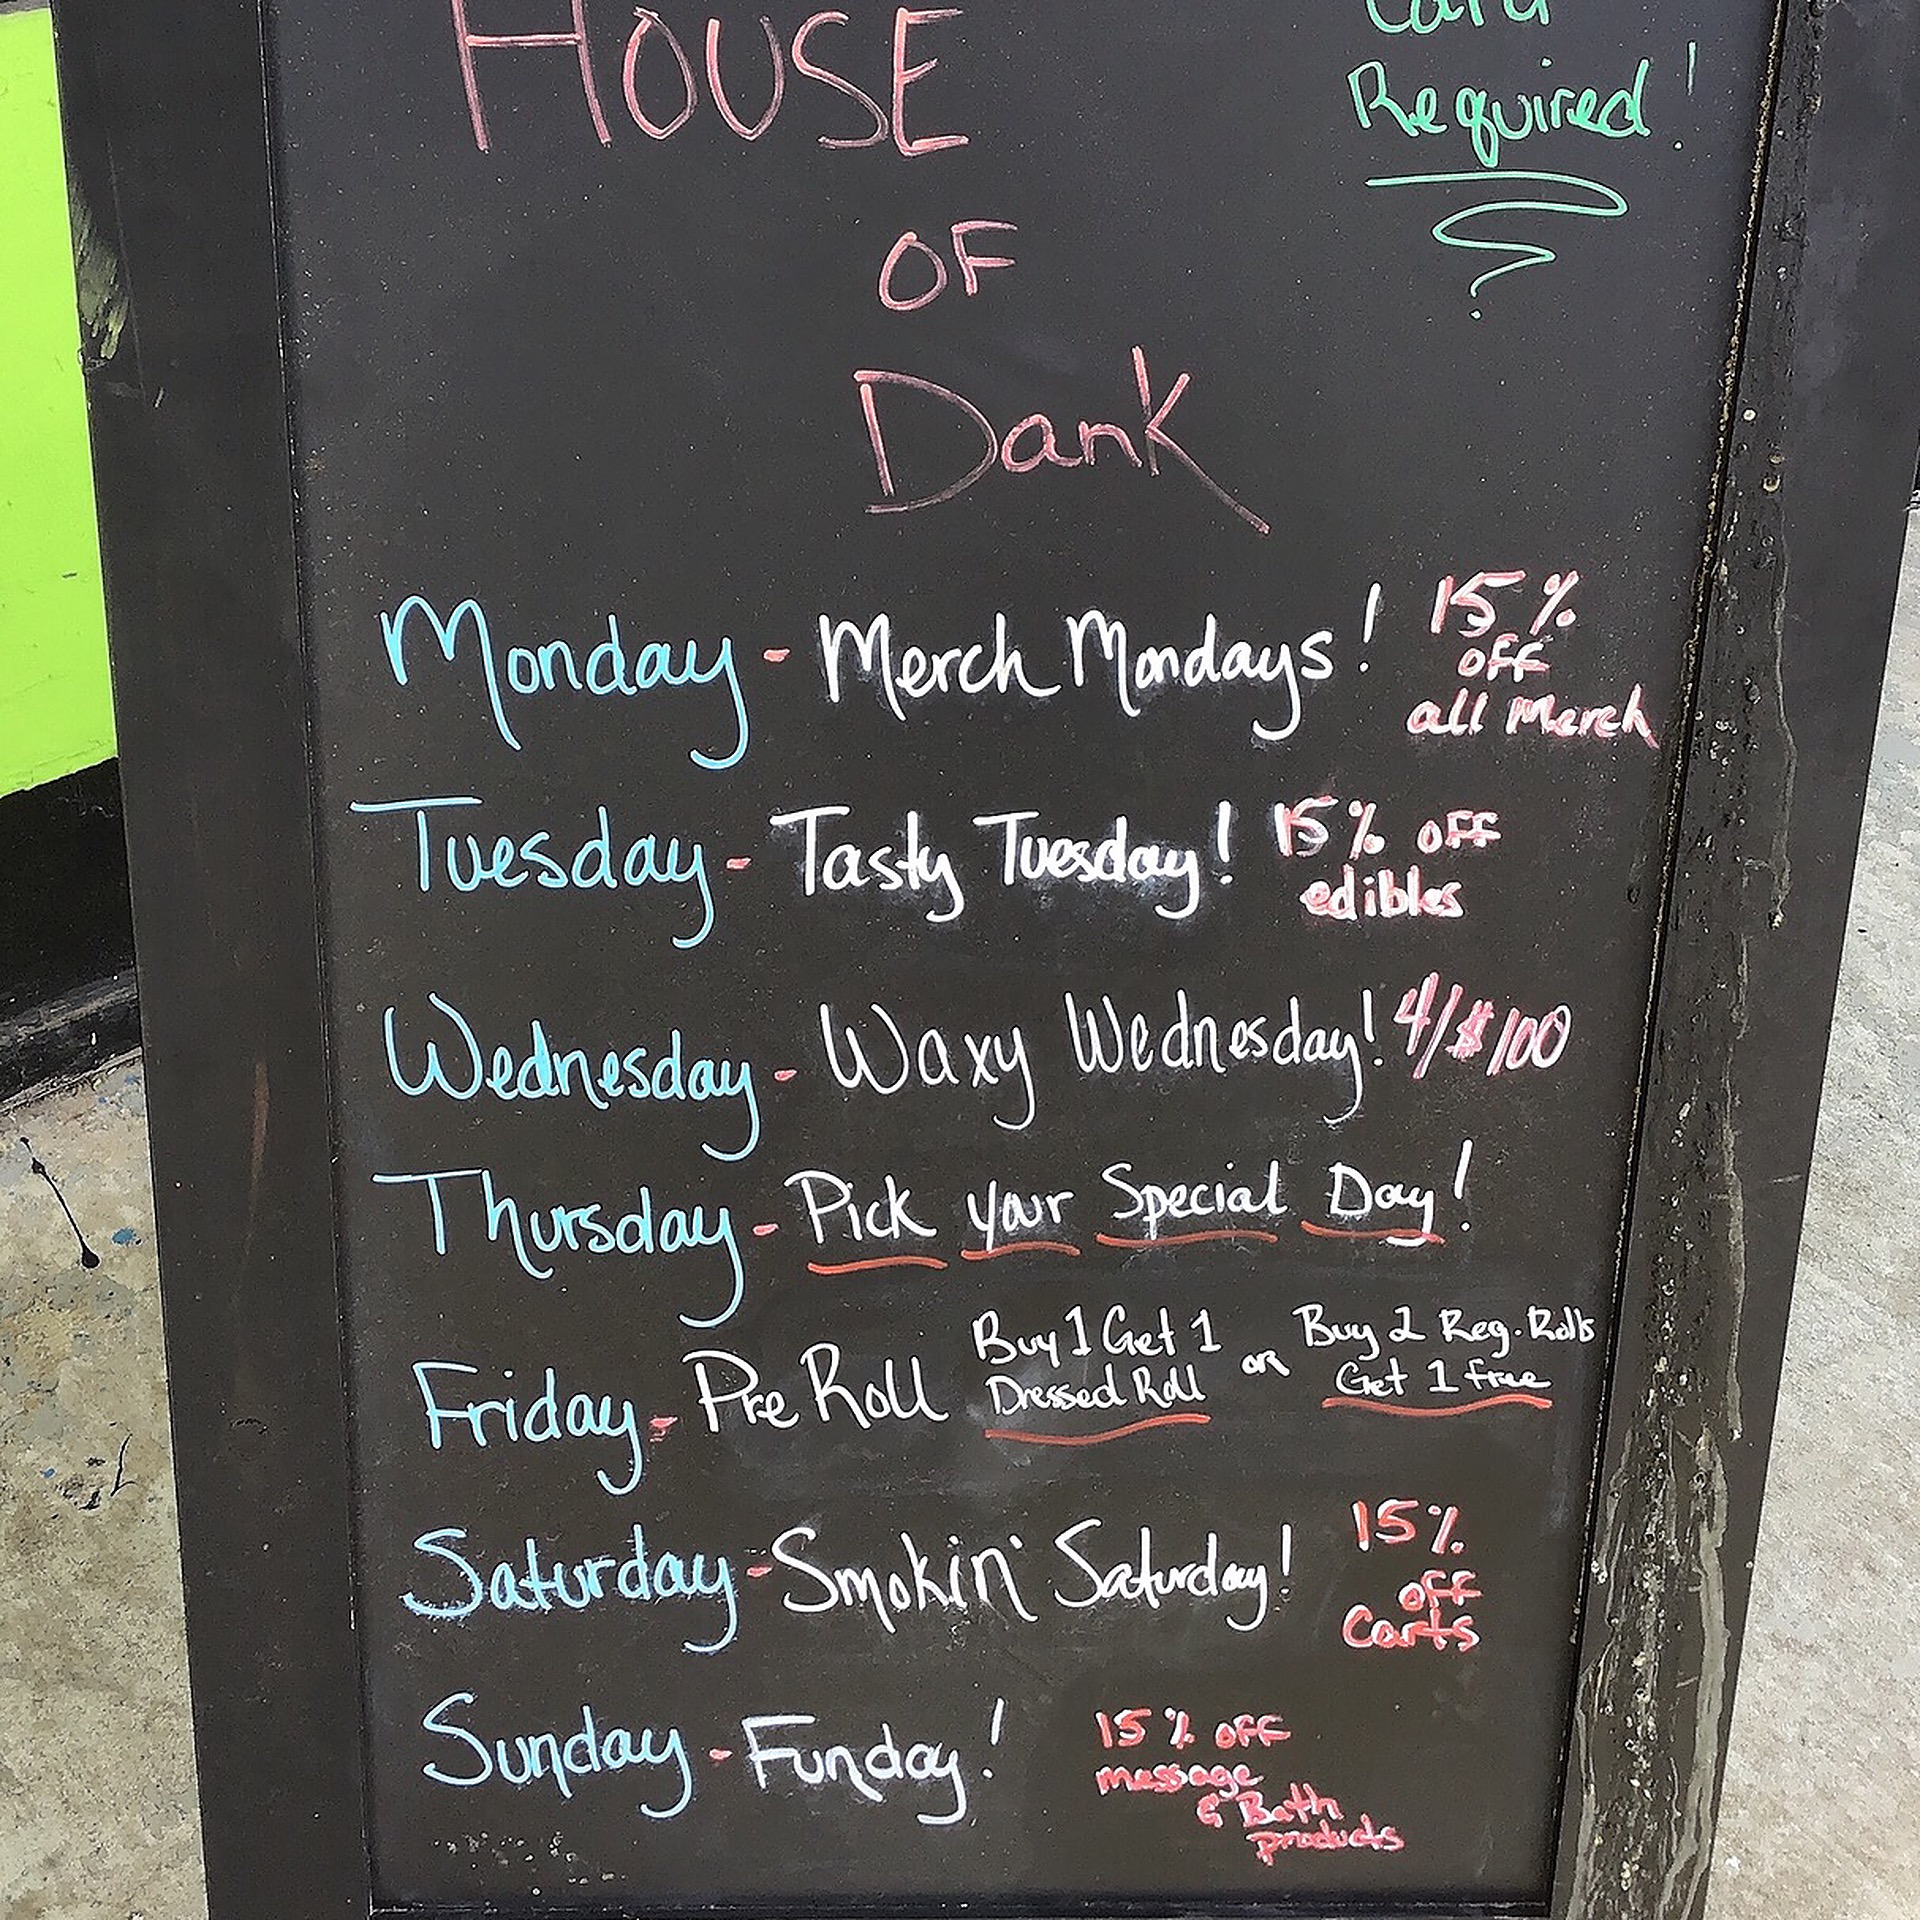 HOUSE
OF
Dank
Card
Required!
Monday - Merch Mondays! 15% OFF all Merch
Tuesday - Tasty Tuesday! 15% OFF edibles
Wednesday - Waxy Wednesday! 4/$100
Thursday - Pick your Special Day!
Friday - Pre Roll Buy 1 Get 1 Dressed Roll or Buy 2 Reg. Rolls Get 1 free
Saturday - Smokin' Saturday! 15% OFF Carts
Sunday - Funday! 15% OFF message & Bath products